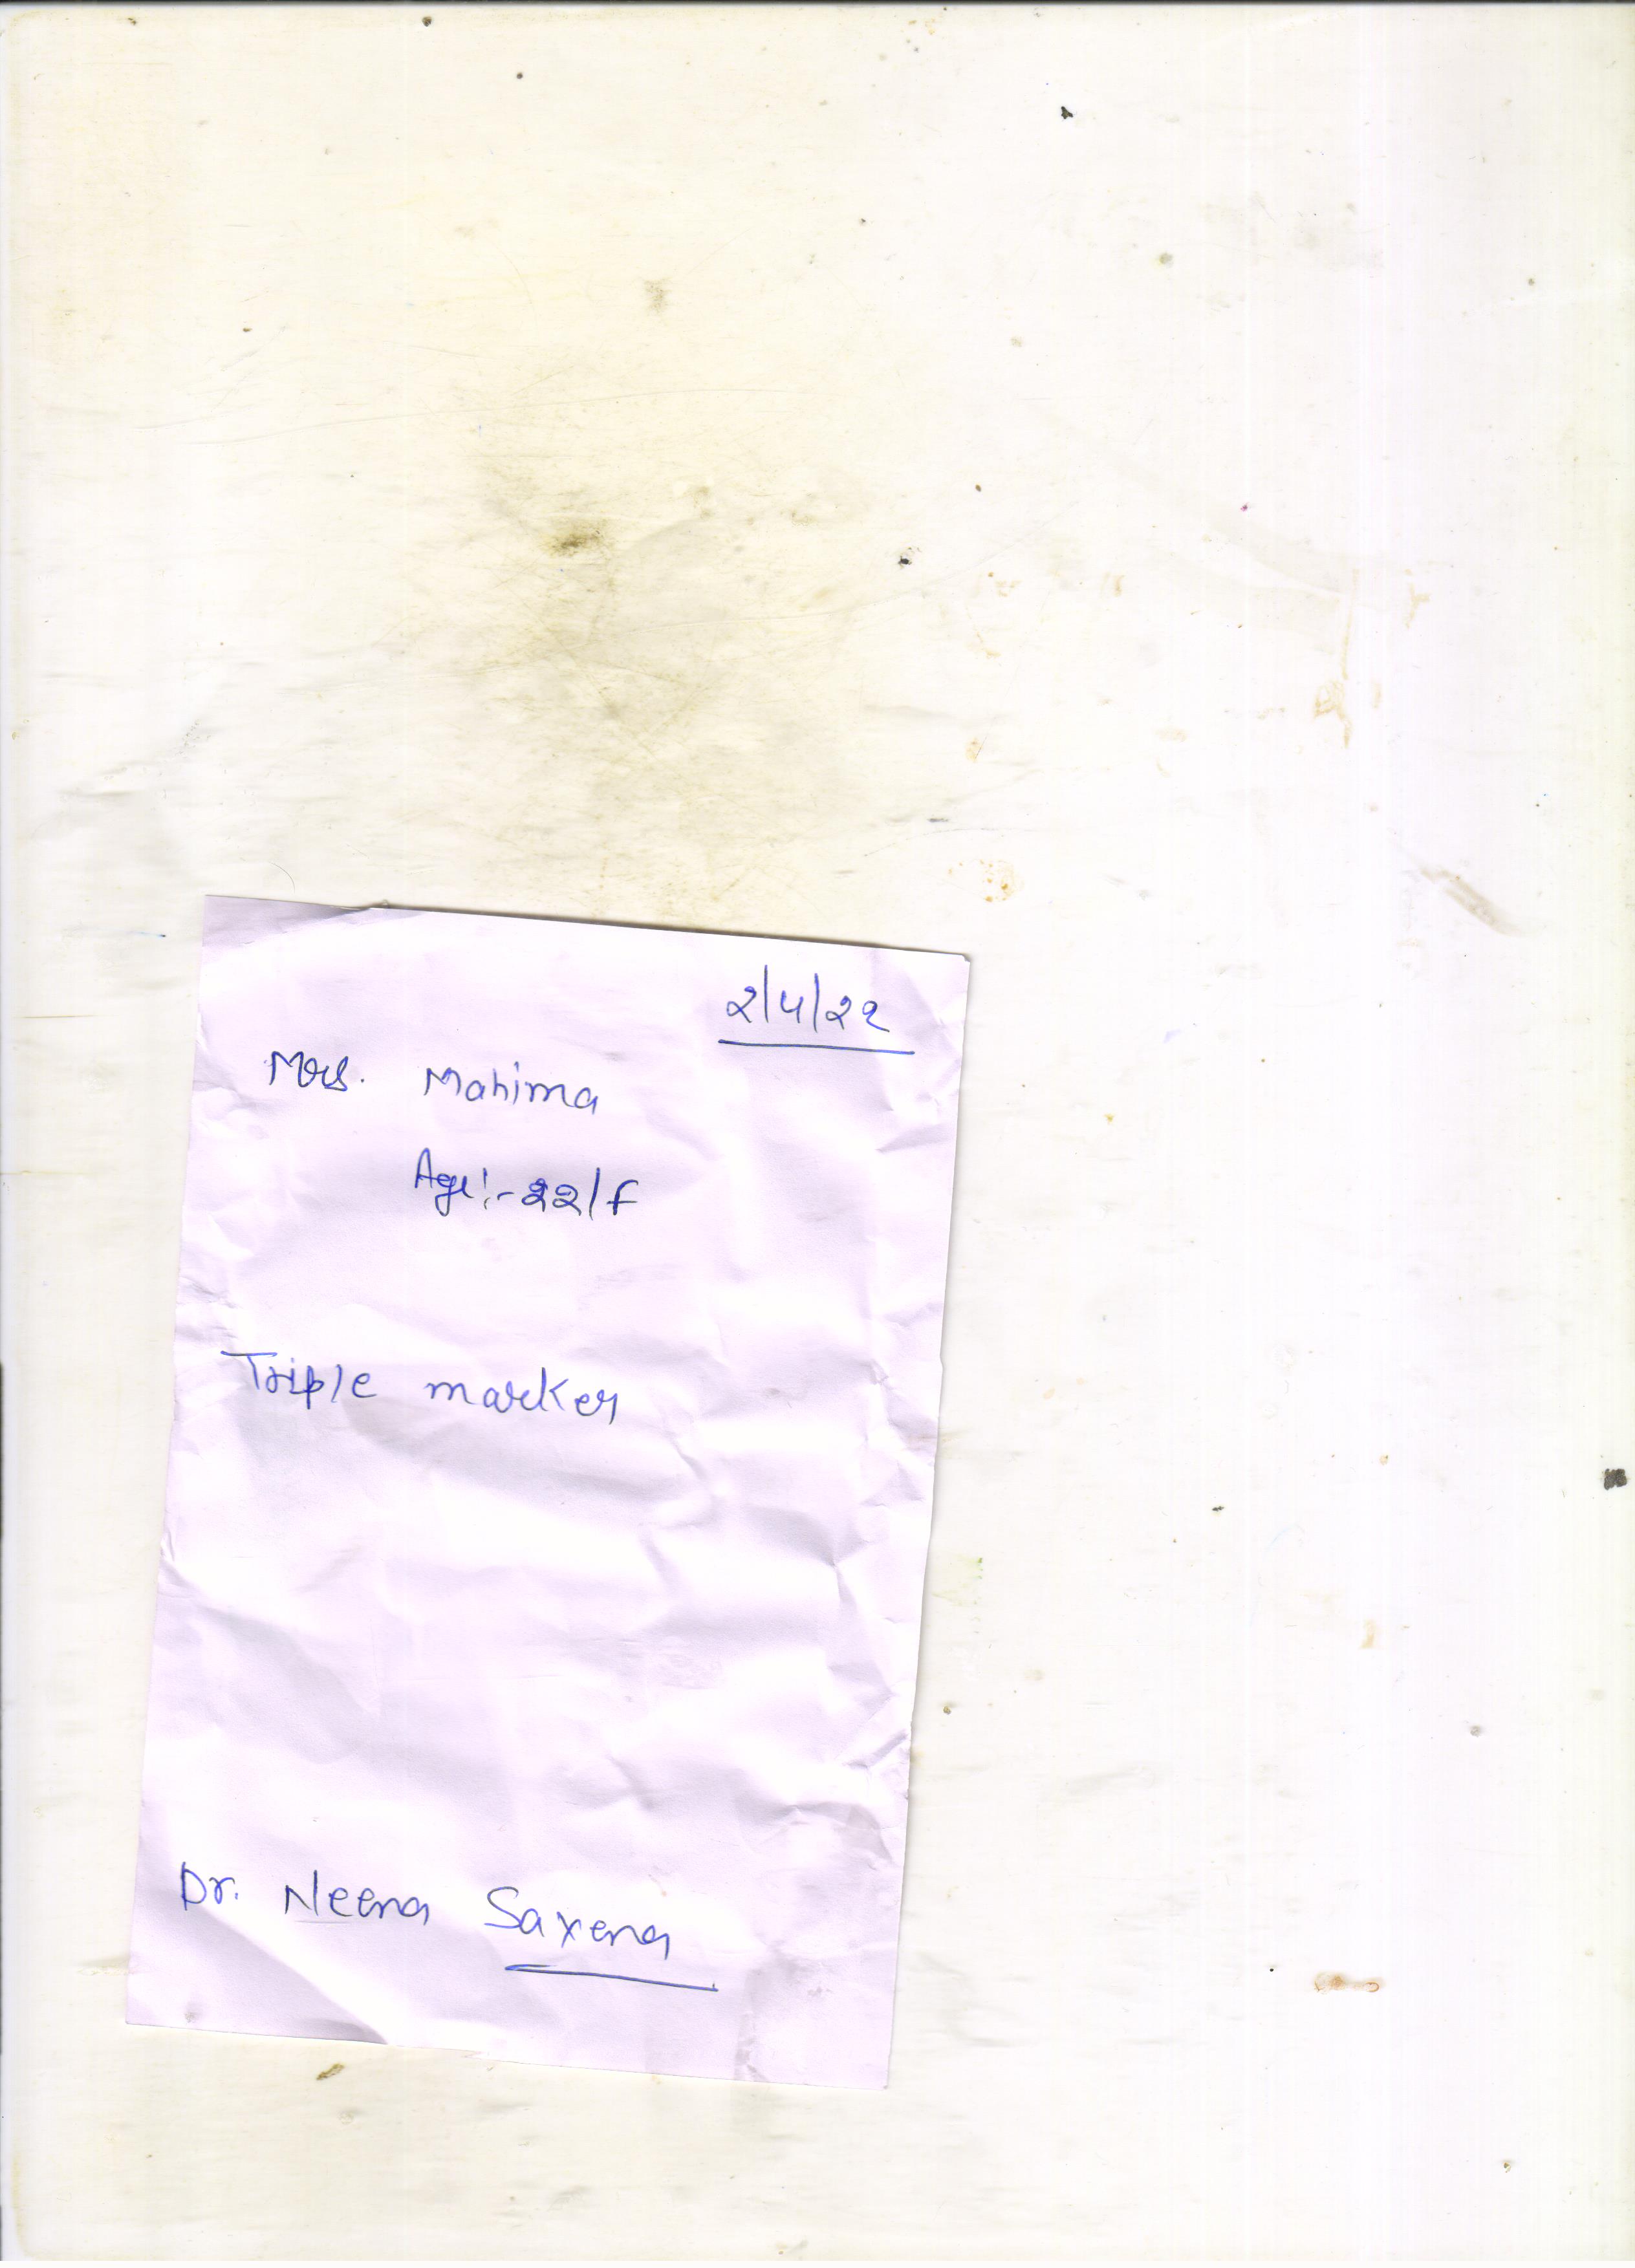 2/4/22
Mrs. Mahima
Age:-22/F
Triple marker
Dr. Neena Saxena